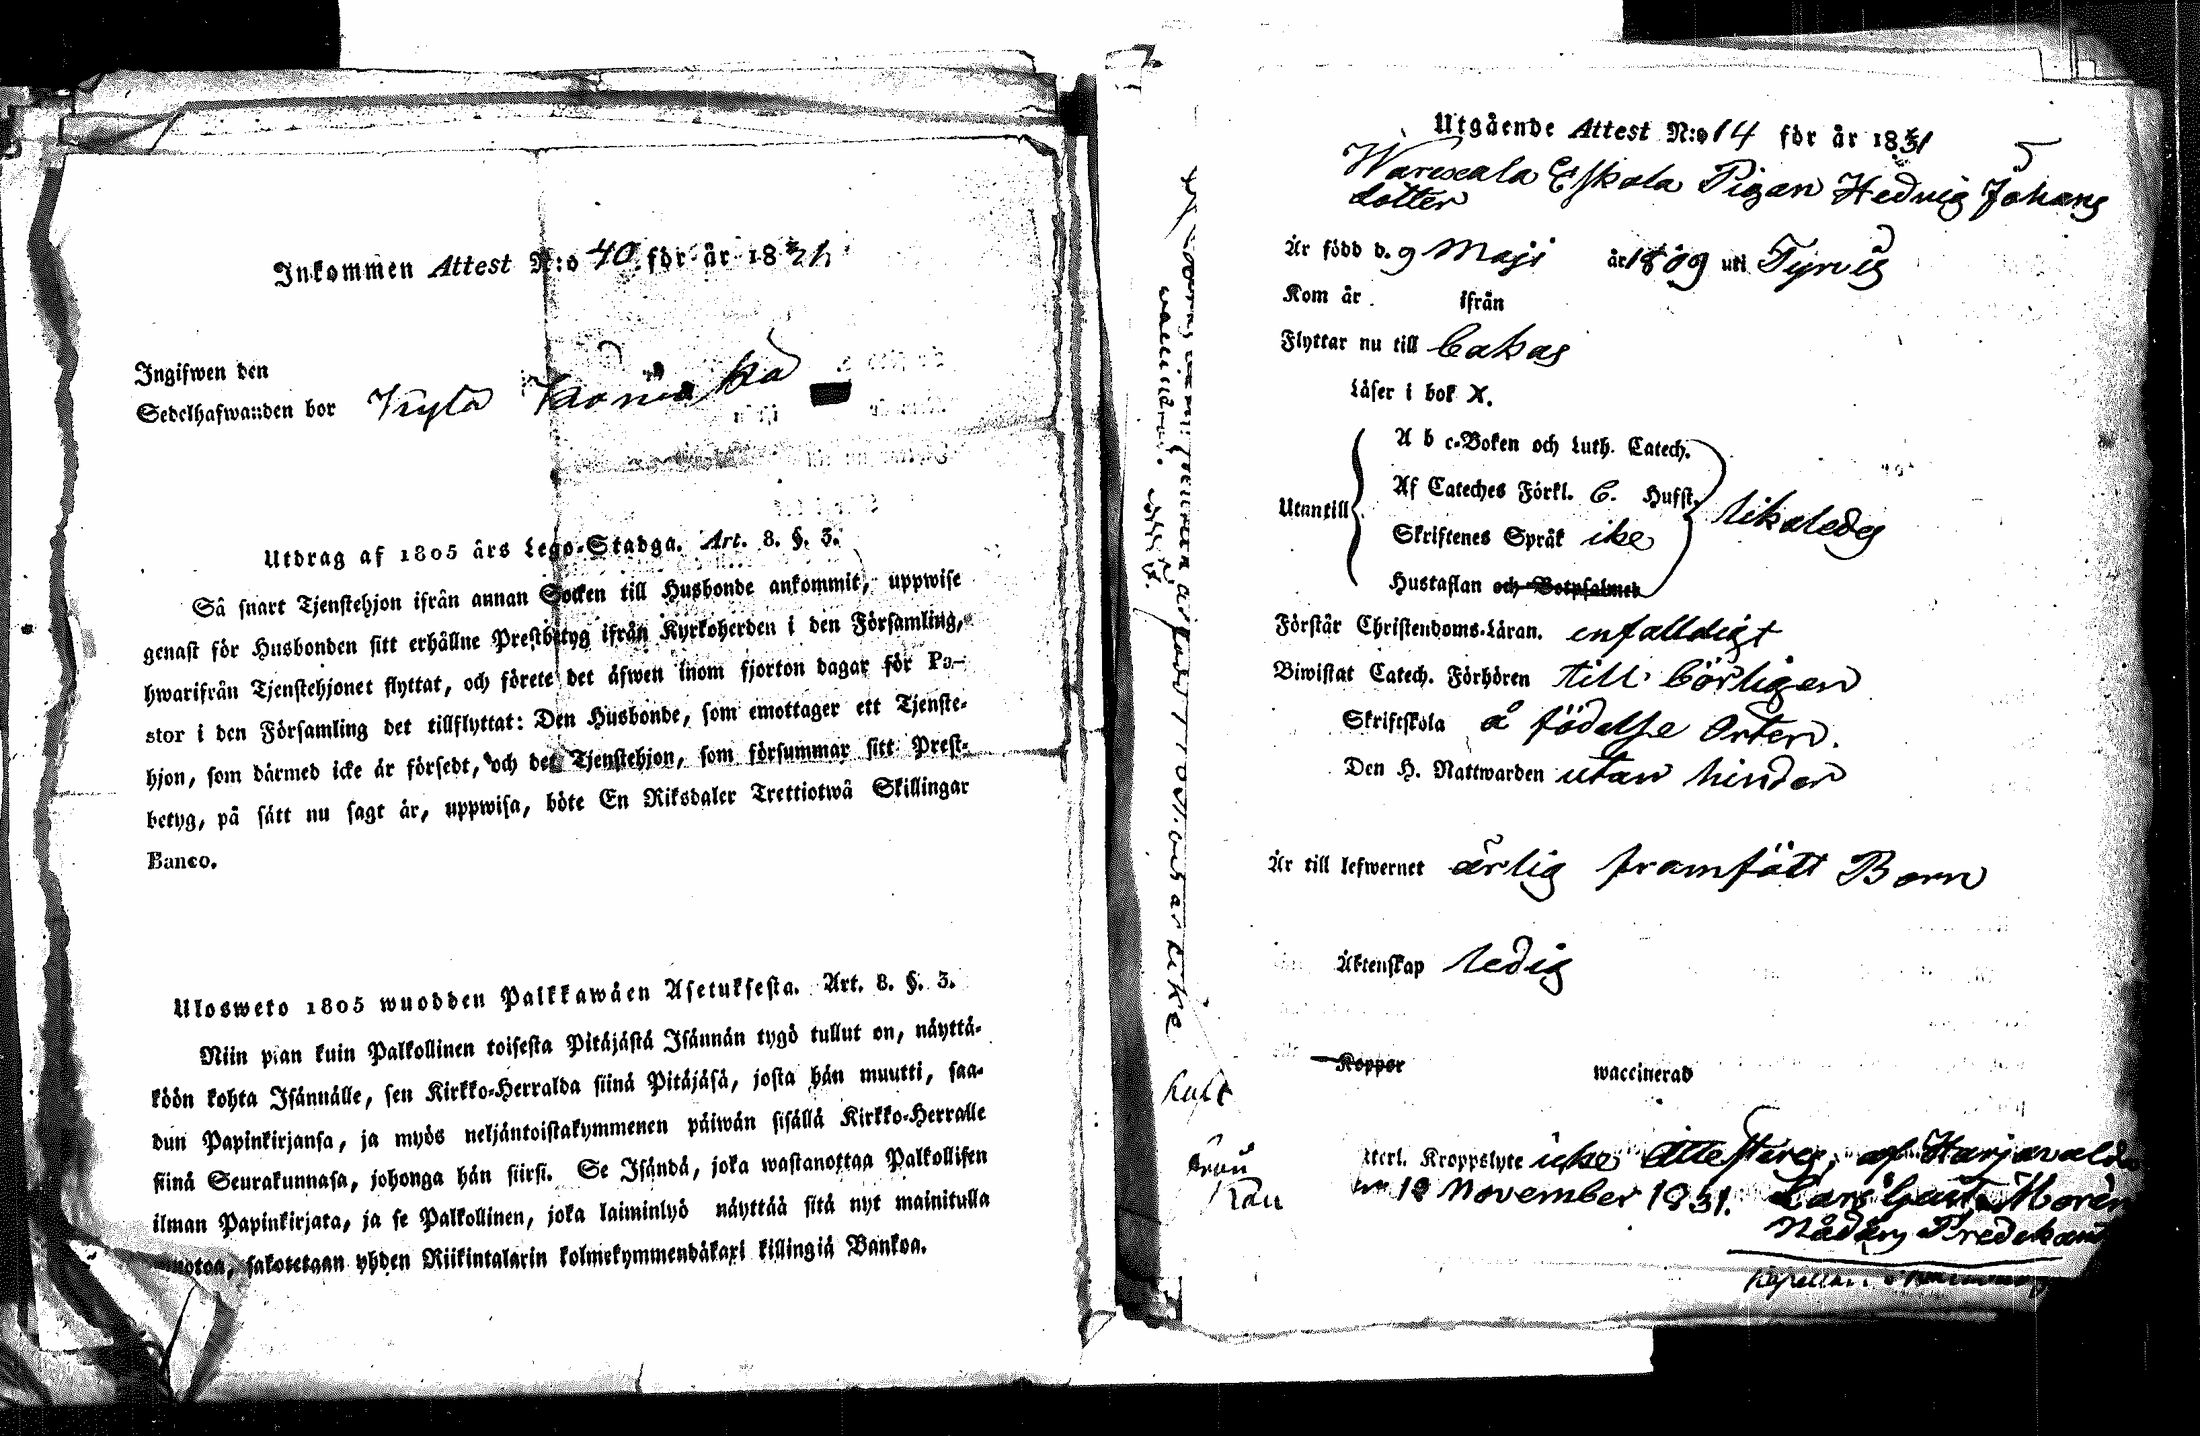 Inkommen Attest N:o 40. för år 18
Ingifwen den
Sedelhafwanden bor Kylä
Utdrag af 1805 års Lego-Stadga. Art. 8. §. 3.
Så snart Tjenstehjon ifrån annan Socken till Husbonde ankommit, uppwise
genast för Husbonden sitt erhållne Prestbetyg ifrån Kyrkoherden i den Församling,
hwarifrån Tjenstehjonet flyttat, och förete det äfwen inom fjorton dagar för Pa-
stor i den Församling det tillflyttat: Den Husbonde, som emottager ett Tjenste-
hjon, som därmed icke är försedt, och det Tjenstehjon, som försummar sitt Prest-
betyg, på sätt nu sagt är, uppwisa, böte En Riksdaler Trettiotwå Skillingar
Banco.
Ulosweto 1805 wuodden Palkkawäen Asetuksesta. Art. 8. §. 3.
Niin pian kuin Palkollinen toisesta Pitäjästä Isännän tygö tullut on, näyttä-
köön kohta Isännälle, sen Kirkko-Herralda siinä Pitäjäsä, josta hän muutti, saa-
dun Papinkirjansa, ja myös neljäntoistakymmenen päiwän sisällä Kirkko-Herralle
siinä Seurakunnasa, johonga hän siirsi. Se Isändä, joka wastanottaa Palkollisen
ilman Papinkirjata, ja se Palkollinen, joka laiminlyö näyttää sitä nyt mainitulla
muotoa, sakotetaan yhden Riikintalarin kolmekymmendäkaxi killingiä Bankoa.
Utgående Attest N:o 14 för år 1831
Eskola Pigan Hedvig Johans
dotter
Är född d. 9 Maji år 1809 uti Tyrvis
Kom år ifrån
Flyttar nu till Cakas
Läser i bok X.
Utantill
A b c-Boken och Luth. Catech.
Af Cateches Förkl. 6. Hufst.
likaledes
Skriftenes Språk ike
Hustaflan och Botpsalmer
Förstår Christendoms-Läran. enfalldigt
Biwistat Catech. Förhören till börligen
Skriftskola å födelse Orten.
Den H. Nattwarden utan hinder
Är till lefwernet ärlig framfött Barn
Äktenskap ledig
Koppor waccinerad
Kroppslyte icke Attesteres, af Harjavalda
den 12 November 1831. Lars Gust. Morén
Nådårs Predikant